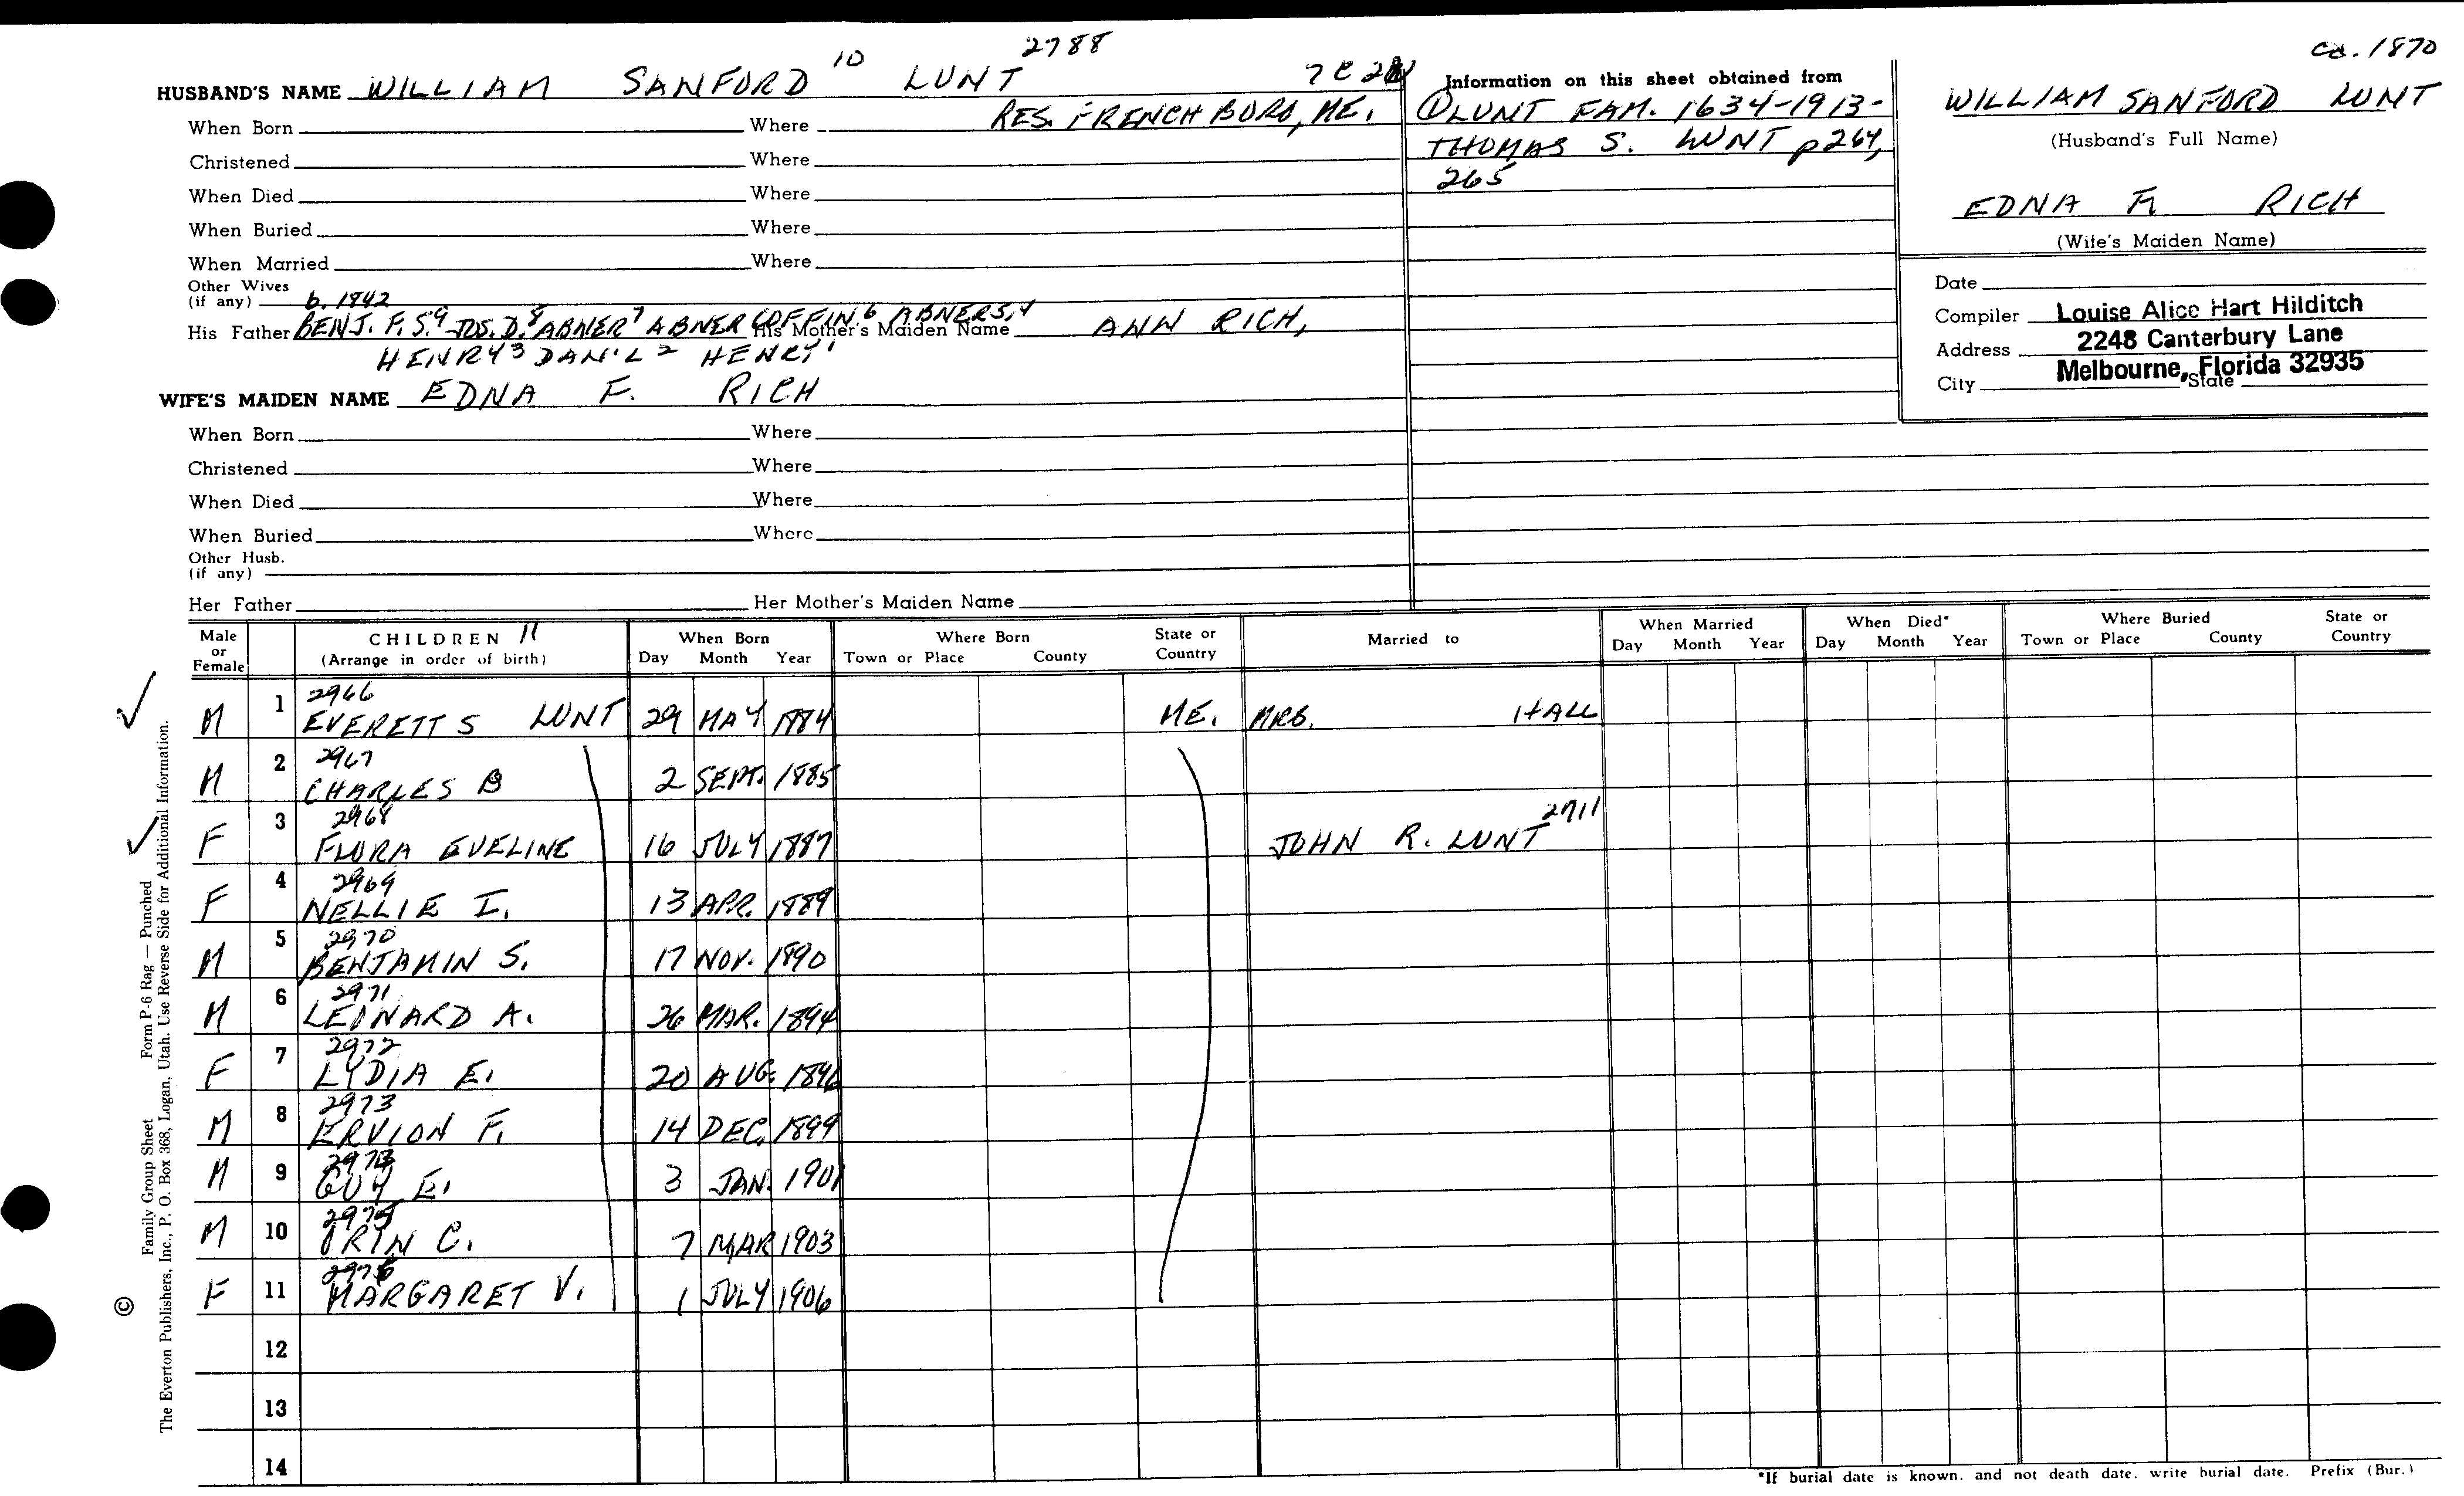 ca. 1870
10 2788
HUSBAND'S NAME WILLIAM SANFORD LUNT
When Born Where RES. FRENCHBORO, ME.
Christened Where
When Died Where
When Buried Where
When Married Where
Other Wives
(if any) b. 1842
His Father BENJ. F. S.9 D.8 ABNER7 ABNER COFFIN6 ABNER5,4 His Mother's Maiden Name ANN RICH,
HENRY3 DAN'L2 HENRY1
WIFE'S MAIDEN NAME EDNA F. RICH
When Born Where
Christened Where
When Died Where
When Buried Where
Other Husb.
(if any)
Her Father Her Mother's Maiden Name
Information on this sheet obtained from
① LUNT FAM. 1634-1913-
THOMAS S. LUNT p264,
265
WILLIAM SANFORD LUNT
(Husband's Full Name)
EDNA F. RICH
(Wife's Maiden Name)
Date
Compiler Louise Alice Hart Hilditch
Address 2248 Canterbury Lane
Melbourne, Florida 32935
City State
Male or Female CHILDREN 11 (Arrange in order of birth) When Born Day Month Year Where Born Town or Place County State or Country Married to When Married Day Month Year When Died* Day Month Year Where Buried Town or Place County State or Country
2966
M 1 EVERETT S LUNT 29 MAY 1884 ME. MRS. HALL
2967
M 2 CHARLES B 2 SEPT. 1885
2968
F 3 FLORA EVELINE 16 JULY 1887 JOHN R. LUNT 2711
2969
F 4 NELLIE I. 13 APR. 1889
2970
M 5 BENJAMIN S. 17 NOV. 1890
2971
M 6 LEONARD A. 26 MAR. 1894
2972
F 7 LYDIA E. 20 AUG. 1896
2973
M 8 ERVION F. 14 DEC. 1899
M 9 GUY E. 3 JAN. 1901
2975
M 10 ORIN C. 7 MAR 1903
2976
F 11 MARGARET V. 1 JULY 1906
12
13
14
*If burial date is known, and not death date, write burial date. Prefix (Bur.)
© Family Group Sheet Form P-6 Rag — Punched
The Everton Publishers, Inc., P. O. Box 368, Logan, Utah. Use Reverse Side for Additional Information.